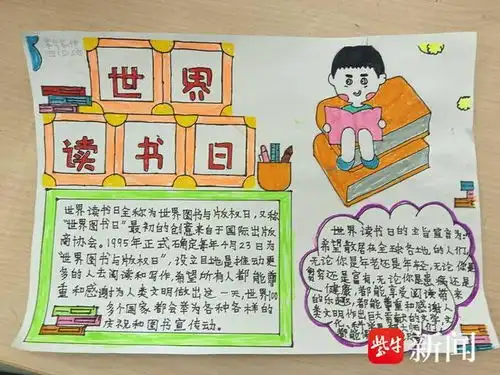 世界
读书日
世界读书日全称为世界图书与版权日,又称
“世界图书日”最初的创意来自于国际出版
商协会。1995年正式确定每年4月23日为
“世界图书与版权日”,设立目地是推动更
多的人去阅读和写作,希望所有人都能尊
重和感谢为人类文明做出这一天,世界100
多个国家都会举办各种各样的
庆祝和图书宣传动。
世界读书日的主旨宣言为:
希望散居在全球各地的人们,
无论你是年老还是年轻,无论你是
贫穷还是富有,无论你是患病还是
健康,都能享受阅读带来
的乐趣,都能尊重和感谢人
类文明作出巨大贡献的文学、文
化、科学
都能
紫牛新闻